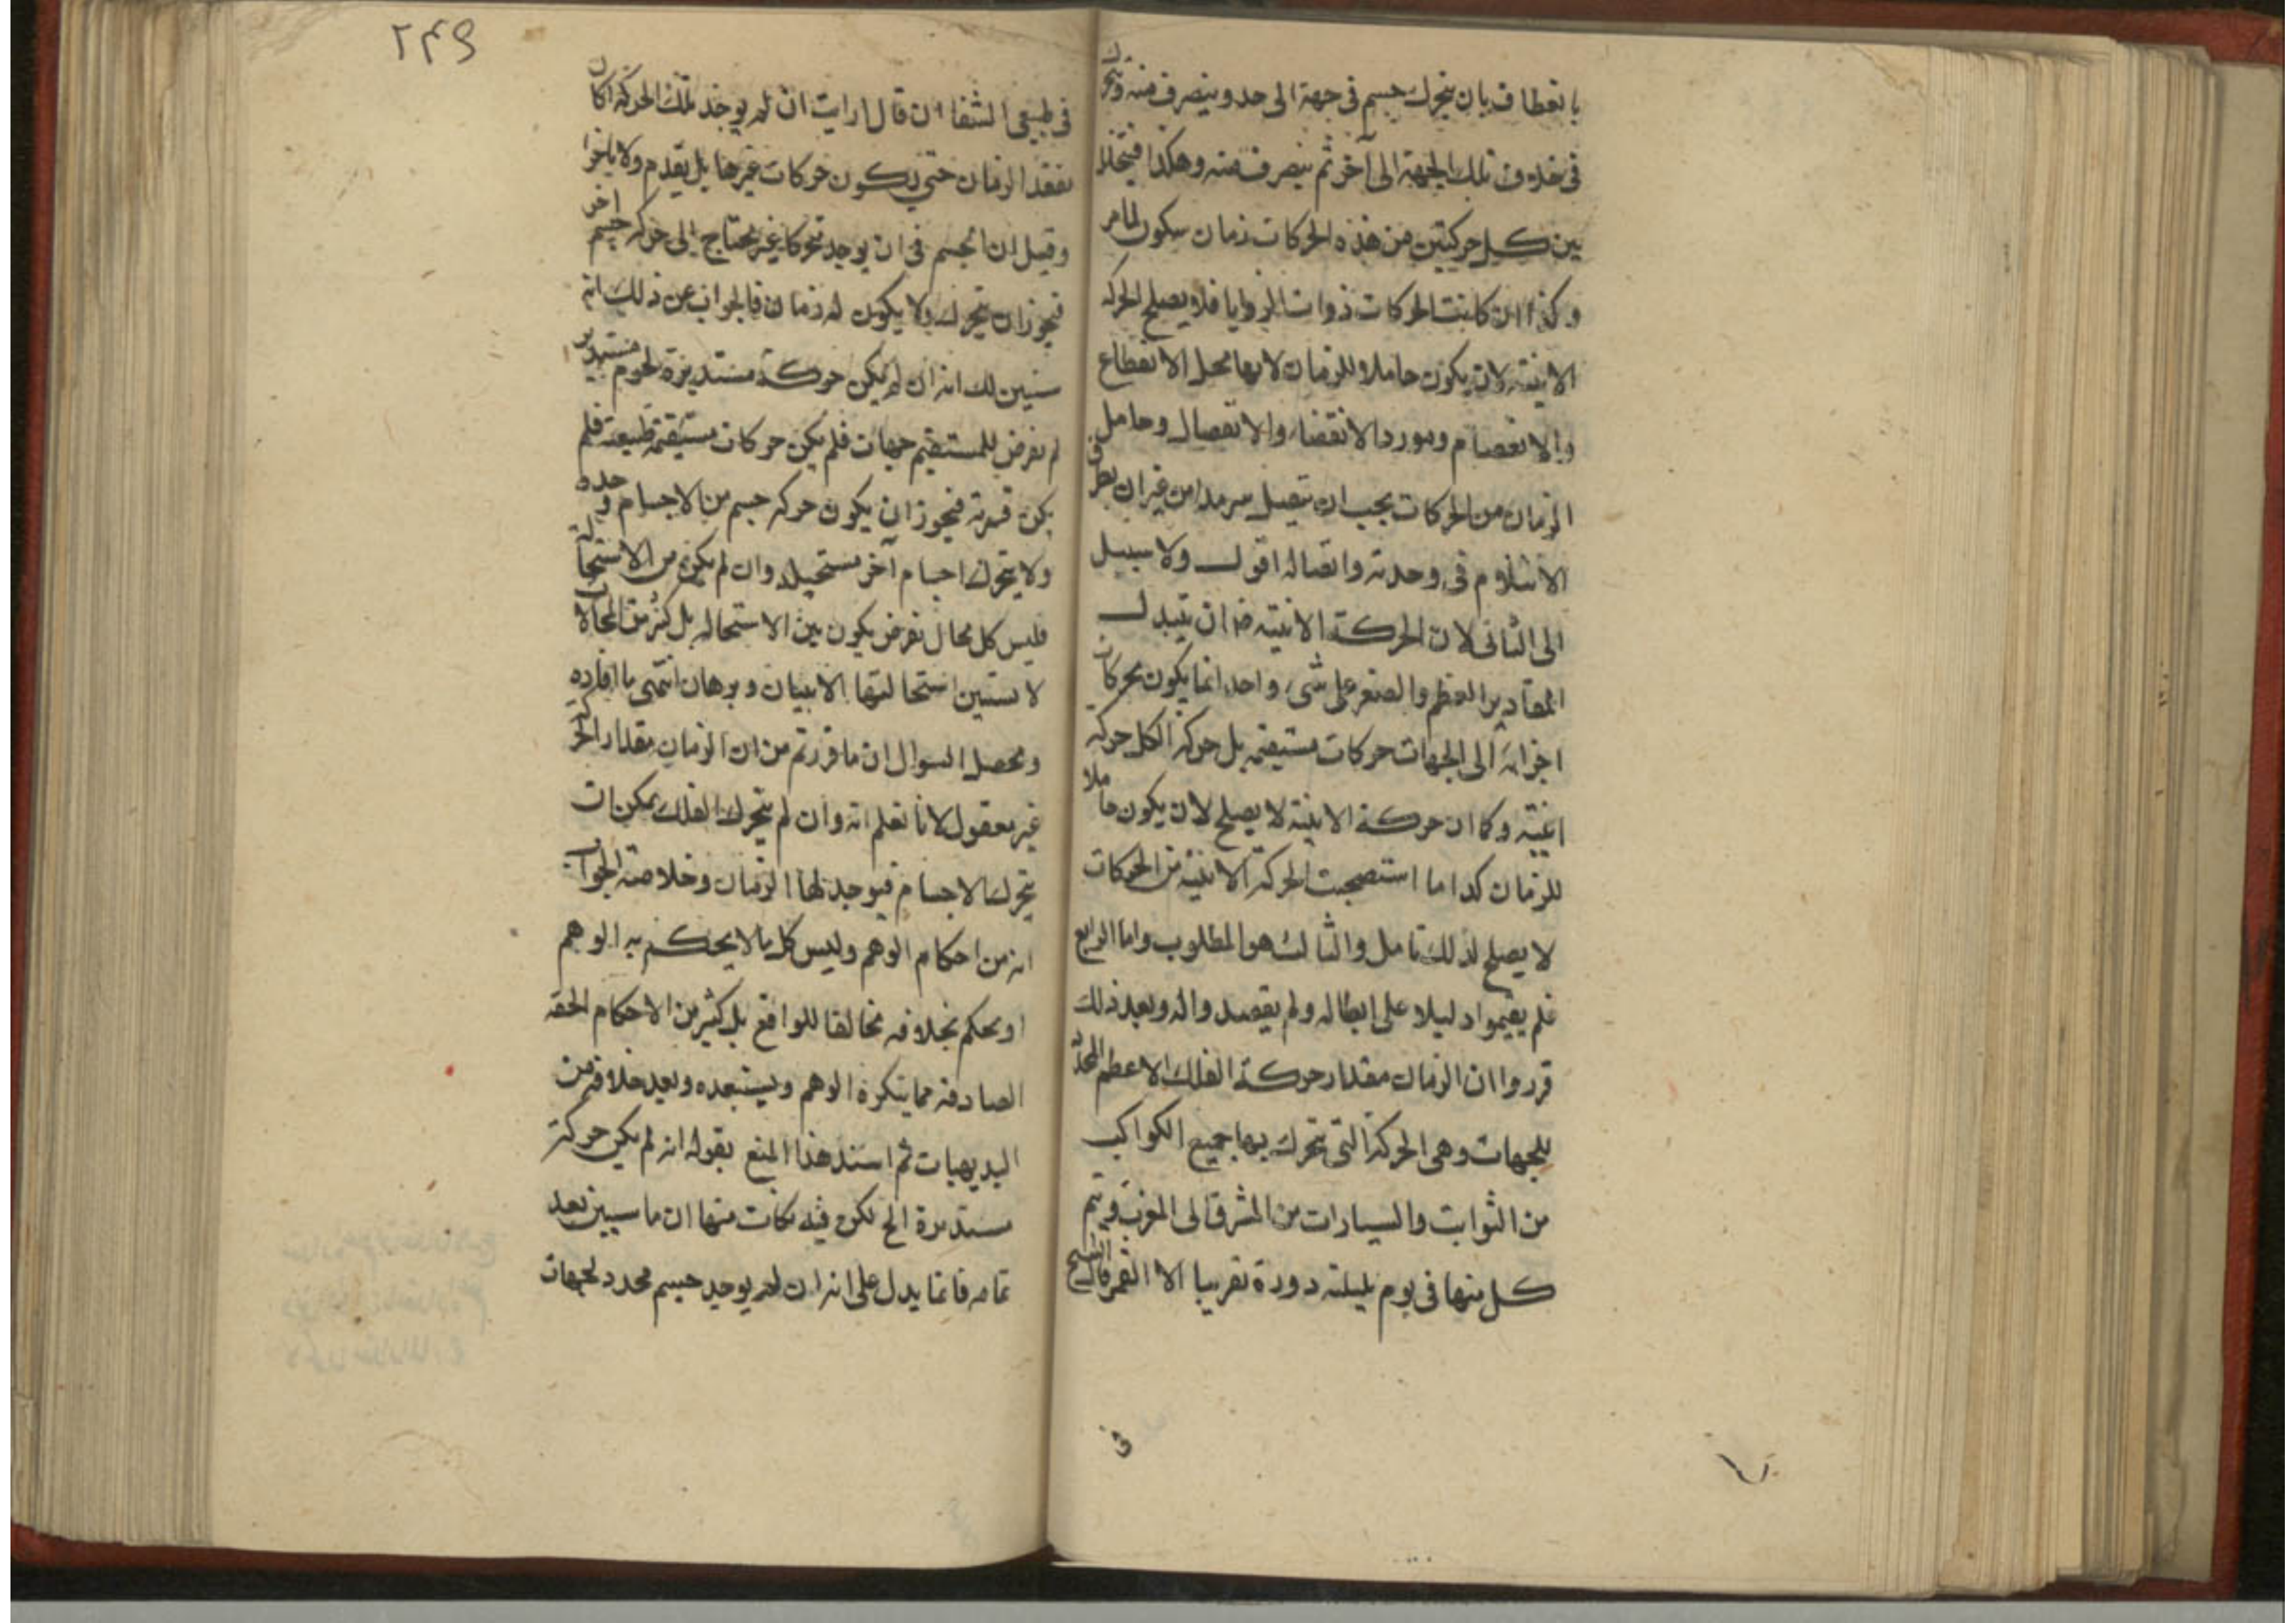 بانعطاف بان يتحرك جسم فى جهة الى حد وينصرف منه ويتحرك
فى خلاف تلك الجهة الى آخر ثم ينصرف منه وهكذا فيتخلل
بين كل حركتين من هذه الحركات زمان سكون لما مر
وكذا ان كانت الحركات ذوات الزوايا فلا يصلح الحركه
الاينية لان يكون حاملا للزمان لانها محل الانقطاع
والانفصام ومورد الانقضاء والانفصال وحامل
الزمان من الحركات يجب ان يتصل سرمدا من غير ان يطرق
الانثلام فى وحدته واتصاله اقول ولا سبيل
الى الثانى لان الحركة الاينية فان تبدل
المقادير العظم والصغر على شىء واحد انما يكون بحركات
اجزائه الى الجهات حركات مستقيمه بل حركة الكل حركه
اينية وكما ان حركة الاينية لا يصلح لان يكون حاملا
للزمان كذا ما استصحبت الحركة الاينية من الحركات
لا يصلح لذلك تامل والثالث هو المطلوب واما الرابع
فلم يقيموا دليلا على ابطاله ولم يقصدوا له وبعد ذلك
قرروا ان الزمان مقدار حركة الفلك الاعظم المحدد
للجهات وهى الحركة التى تتحرك بها جميع الكواكب
من الثوابت والسيارات من المشرق الى المغرب فيتم
كل منها فى يوم بليلته دورة تقريبا الا القمر قال الشيخ
فى
٢٤٩
فى طبيعى الشفا ان قال ارايت ان لم يوجد تلك الحركة اكان
يفقد الزمان حتى يكون حركات غيرها بل يقدم ولا ياخر
وقيل ان الجسم فى ان يوجد متحركا غير محتاج الى حركه جسم اخر
فيجوز ان يتحرك ولا يكون له زمان فالجواب عن ذلك انه
سنبين لك انه ان لم يكن حركة مستديرة لجرم مستدير
لم يفرض للمستقيم جهات فلم يكن حركات مستقيمة طبيعة فلم
يكن قسرية فيجوز ان يكون حركه جسم من الاجسام وحده
ولا يتحرك اجسام آخر مستحيلا وان لم يكن من الاستحالة
فليس كل محال نفرض يكون بين الاستحاله بل كثير من المحالات
لا نستبين استحالتها الا ببيان وبرهان انتهى ما افاده
ومحصل السوال ان ما قررتم من ان الزمان مقدار الحركة
غير معقول لانا نعلم انه وان لم يتحرك الفلك يمكن ان
يتحرك الاجسام فيوجد لها الزمان وخلاصة الجواب
انه من احكام الوهم وليس كل ما لا يحكم به الوهم
او يحكم بخلافه مخالفا للواقع بل كثير من الاحكام الحقه
الصادقه مما ينكره الوهم ويستبعده وبعد خلافه من
البديهيات ثم اسند هذا المنع بقوله انه لم يكن حركة
مستديرة الخ لكن فيه نكات منها ان ما سيبين بعد
تمامه فانما يدل على انه ان لم يوجد جسم محدد لجهات